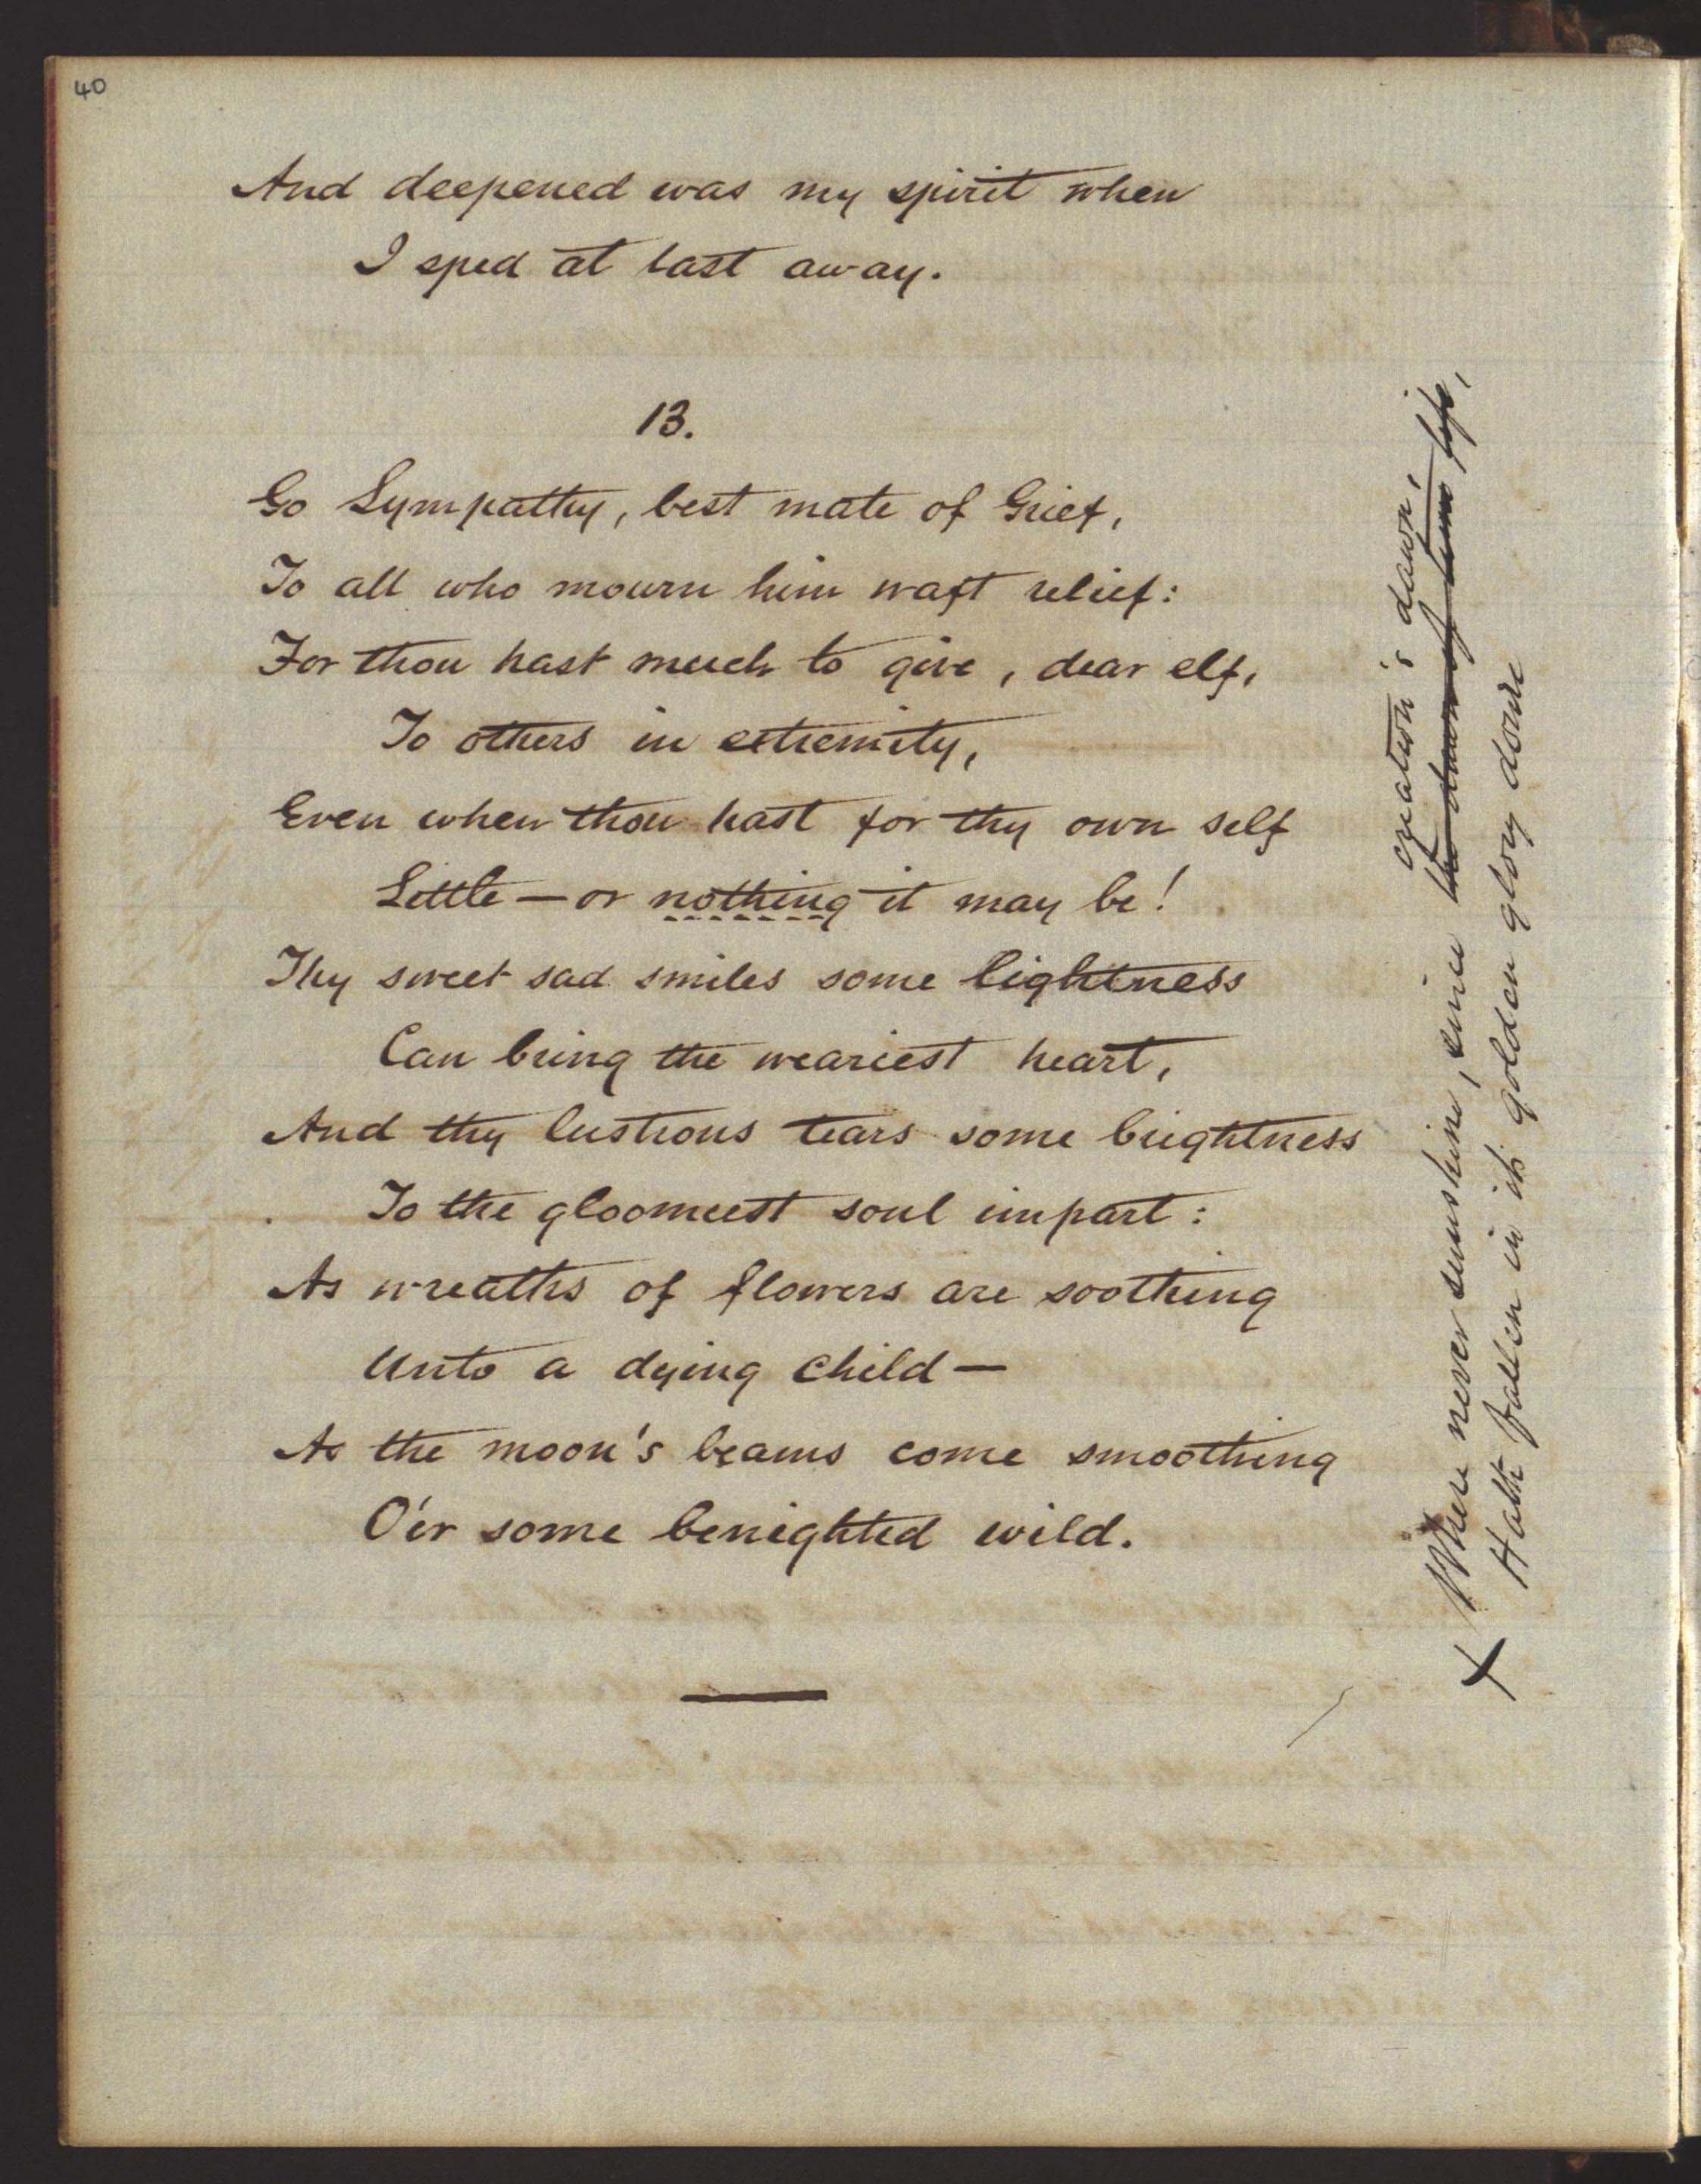 40
And deepened was my spirit when
I sped at last away.
13.
Go Sympathy, best mate of Grief,
To all who mourn him waft relief:
For thou hast much to give, dear elf,
To others in extremity,
Even when thou hast for thy own self
Little — or nothing it may be!
Thy sweet sad smiles some lightness
Can bring the weariest heart,
And thy lustrous tears some brightness
To the gloomiest soul impart:
As wreaths of flowers are soothing
Unto a dying child —
As the moon's beams come smoothing
O'er some benighted wild.
creation's dawn,
X Where never sunshine, since the dawn of time life,
Hath fallen in its golden glory down